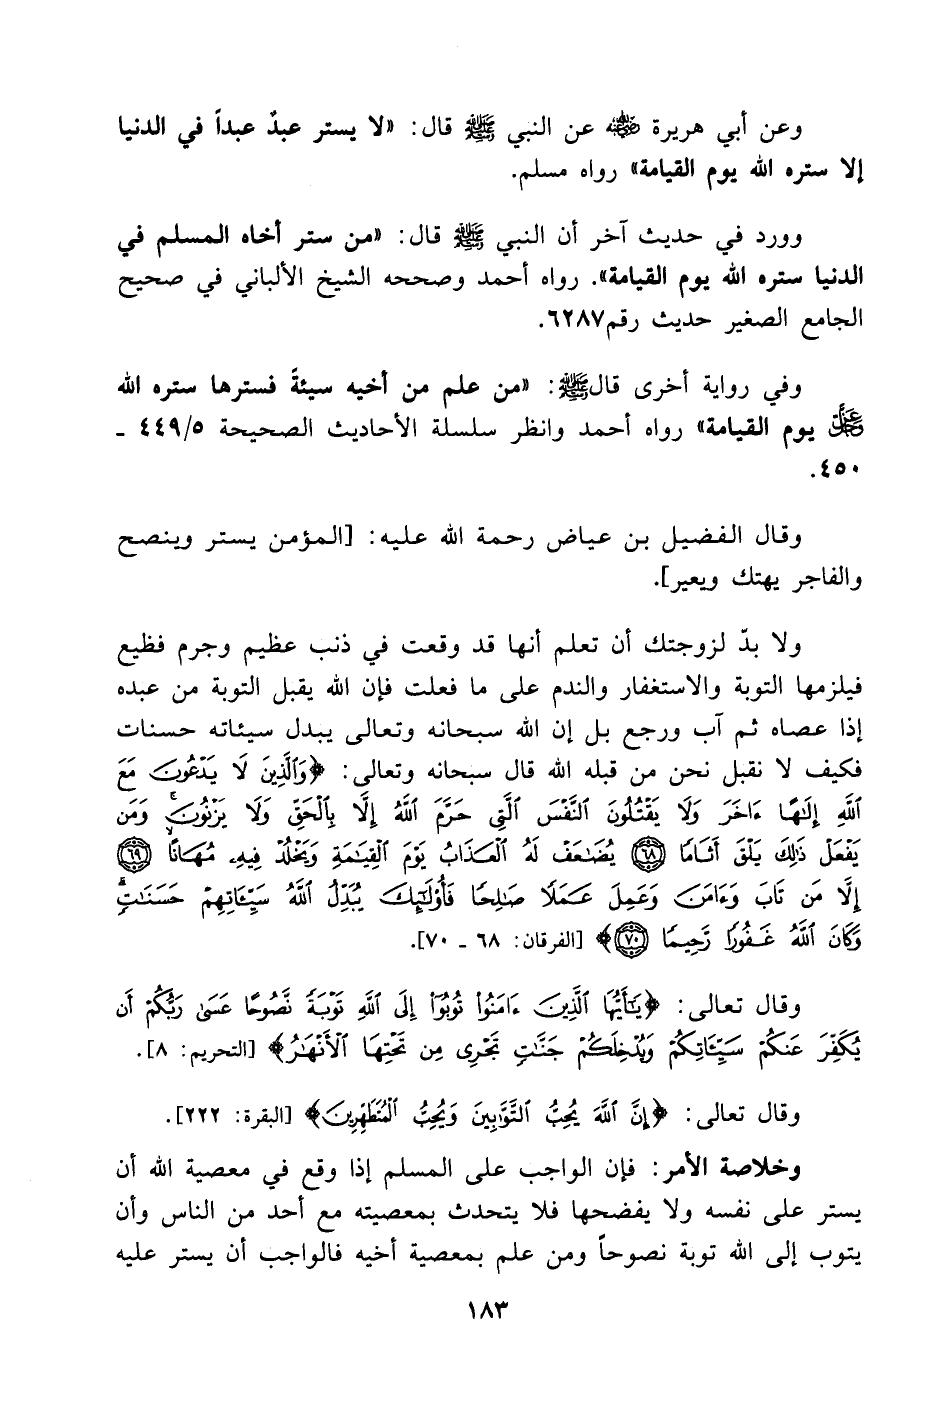 وعن أبي هريرة ﵁ عن النبي ﷺ قال: «لا يستر عبدٌ عبداً في الدنيا
إلا ستره الله يوم القيامة» رواه مسلم.
وورد في حديث آخر أن النبي ﷺ قال: «من ستر أخاه المسلم في
الدنيا ستره الله يوم القيامة». رواه أحمد وصححه الشيخ الألباني في صحيح
الجامع الصغير حديث رقم٦٢٨٧.
وفي رواية أخرى قالﷺ: «من علم من أخيه سيئةً فسترها ستره الله
عَزَّوَجَلَّ يوم القيامة» رواه أحمد وانظر سلسلة الأحاديث الصحيحة ٤٤٩/٥ ـ
٤٥٠.
وقال الفضيل بن عياض رحمة الله عليه: [المؤمن يستر وينصح
والفاجر يهتك ويعير].
ولا بدّ لزوجتك أن تعلم أنها قد وقعت في ذنب عظيم وجرم فظيع
فيلزمها التوبة والاستغفار والندم على ما فعلت فإن الله يقبل التوبة من عبده
إذا عصاه ثم آب ورجع بل إن الله سبحانه وتعالى يبدل سيئاته حسنات
فكيف لا نقبل نحن من قبله الله قال سبحانه وتعالى: ﴿وَٱلَّذِينَ لَا يَدْعُونَ مَعَ
ٱللَّهِ إِلَٰهًا ءَاخَرَ وَلَا يَقْتُلُونَ ٱلنَّفْسَ ٱلَّتِى حَرَّمَ ٱللَّهُ إِلَّا بِٱلْحَقِّ وَلَا يَزْنُونَ ۚ وَمَن
يَفْعَلْ ذَٰلِكَ يَلْقَ أَثَامًا ٦٨ يُضَٰعَفْ لَهُ ٱلْعَذَابُ يَوْمَ ٱلْقِيَٰمَةِ وَيَخْلُدْ فِيهِۦ مُهَانًا ٦٩
إِلَّا مَن تَابَ وَءَامَنَ وَعَمِلَ عَمَلًا صَٰلِحًا فَأُو۟لَٰٓئِكَ يُبَدِّلُ ٱللَّهُ سَيِّـَٔاتِهِمْ حَسَنَٰتٍ ۗ
وَكَانَ ٱللَّهُ غَفُورًا رَّحِيمًا ٧٠﴾ [الفرقان: ٦٨ ـ ٧٠].
وقال تعالى: ﴿يَٰٓأَيُّهَا ٱلَّذِينَ ءَامَنُوا۟ تُوبُوٓا۟ إِلَى ٱللَّهِ تَوْبَةً نَّصُوحًا عَسَىٰ رَبُّكُمْ أَن
يُكَفِّرَ عَنكُمْ سَيِّـَٔاتِكُمْ وَيُدْخِلَكُمْ جَنَّٰتٍ تَجْرِى مِن تَحْتِهَا ٱلْأَنْهَٰرُ﴾ [التحريم: ٨].
وقال تعالى: ﴿إِنَّ ٱللَّهَ يُحِبُّ ٱلتَّوَّٰبِينَ وَيُحِبُّ ٱلْمُتَطَهِّرِينَ﴾ [البقرة: ٢٢٢].
وخلاصة الأمر: فإن الواجب على المسلم إذا وقع في معصية الله أن
يستر على نفسه ولا يفضحها فلا يتحدث بمعصيته مع أحد من الناس وأن
يتوب إلى الله توبة نصوحاً ومن علم بمعصية أخيه فالواجب أن يستر عليه
١٨٣